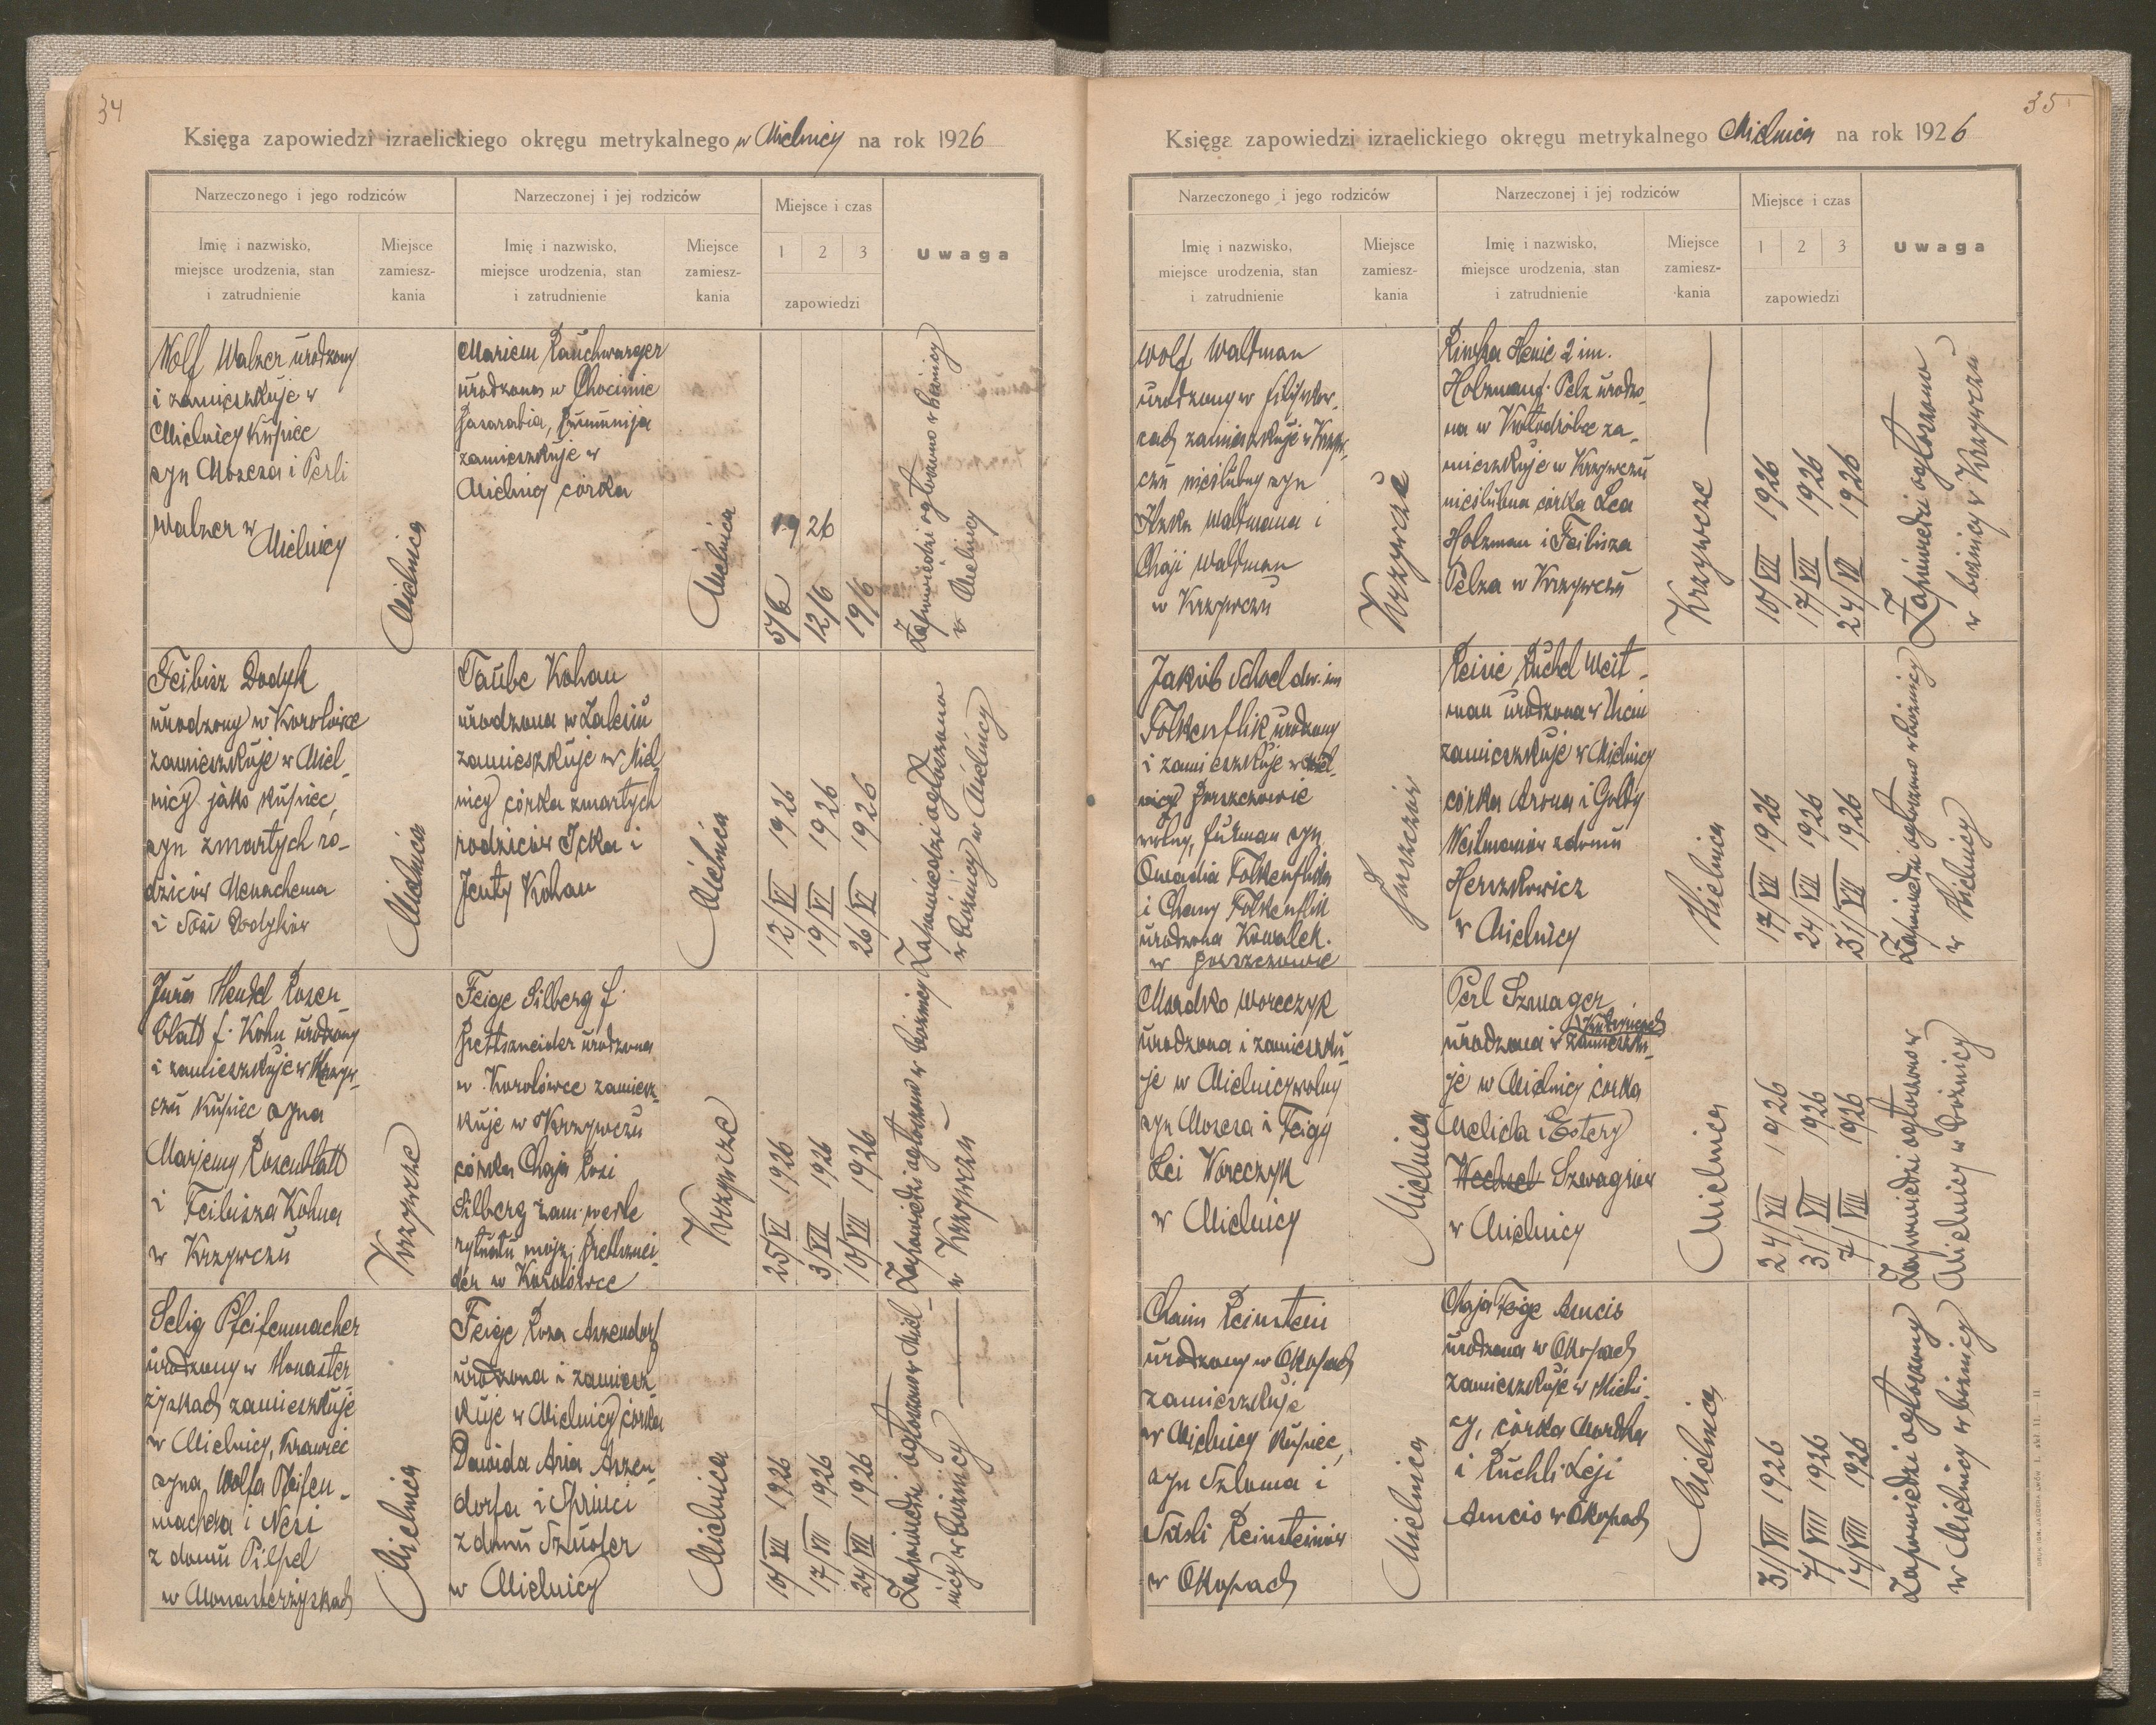 34
Księga zapowiedzi izraelickiego okręgu metrykalnego w Mielnicy na rok 1926
Narzeczonego i jego rodziców
Narzeczonej i jej rodziców
Miejsce i czas
Uwaga
Imię i nazwisko,
miejsce urodzenia, stan
i zatrudnienie
Miejsce
zamiesz-
kania
Imię i nazwisko,
miejsce urodzenia, stan
i zatrudnienie
Miejsce
zamiesz-
kania
1 2 3
zapowiedzi
Wolf Walzer urodzony
i zamieszkuje w
Mielnicy kupiec
syn Moszesa i Perli
Walzer w
Mielnicy
Mielnica
Mariem Rauchwarger
urodzona w Chocimie
Basarabia, Rumunija
zamieszkuje w
Mielnicy córka
Mielnica
1926
5/6
12/6
19/6
Zapowiedzi ogłoszono w bożnicy
w Mielnicy
Feibisz Dodyk
urodzony w Korolówce
zamieszkuje w Miel-
nicy jako kupiec,
syn zmarłych ro-
dziców Menachema
i Sosi Dodyków
Mielnica
Taube Kohan
urodzona w Zalesiu
zamieszkuje w Miel-
nicy córka zmarłych
rodziców Icka i
Jenty Kohan
Mielnica
12/VI 1926
19/VI 1926
26/VI 1926
Zapowiedzi ogłoszono
w bożnicy w Mielnicy
Jura Hendel Rosen-
blatt f. Kohn urodzony
i zamieszkuje w Krzyw-
czu kupiec syna
Marjemy Rosenblatt
i Feibisza Kohna
w Krzywczu
Krzywcze
Feige Silberg f.
Brettszneider urodzona
w Korolówce zamiesz-
kuje w Krzywczu
córka Chaja Rosi
Silberg zam. wedle
rytuału mojż. Brettsznei-
der w Korolówce
Krzywcze
25/VI 1926
3/VII 1926
10/VII 1926
Zapowiedzi ogłoszono w bożnicy
w Krzywczu
Selig Pfeifenmacher
urodzony w Monaster-
żyskach zamieszkuje
w Mielnicy, krawiec
syna Wolfa Pfeifen-
machera i Nesi
z domu Pilpel
w Monasterzyskach
Mielnica
Feige Rosa Aszendorf
urodzona i zamiesz-
kuje w Mielnicy córka
Dawida Aria Aszen-
dorfa i Sprinci
z domu Sznoder
w Mielnicy
Mielnica
10/VII 1926
17/VII 1926
24/VII 1926
Zapowiedzi ogłoszono w Miel-
nicy w bożnicy
35
Księga zapowiedzi izraelickiego okręgu metrykalnego Mielnica na rok 1926
Narzeczonego i jego rodziców
Narzeczonej i jej rodziców
Miejsce i czas
Uwaga
Imię i nazwisko,
miejsce urodzenia, stan
i zatrudnienie
Miejsce
zamiesz-
kania
Imię i nazwisko,
miejsce urodzenia, stan
i zatrudnienie
Miejsce
zamiesz-
kania
1 2 3
zapowiedzi
Wolf Waldman
urodzony w Filipkow-
cach zamieszkuje w Krzyw-
czu nieślubny syn
Iczka Waldmana i
Chaji Waldman
w Krzywczu
Krzywcze
Riwka Henie 2 im.
Holzman f. Pelz urodzo-
na w Kołodróbce za-
mieszkuje w Krzywczu
nieślubna córka Lea
Holzman i Feibisza
Pelza w Krzywczu
Krzywcze
10/VII 1926
17/VII 1926
24/VII 1926
Zapowiedzi ogłoszono
w bożnicy w Krzywczu
Jakób Schoel dw. im
Folkenflik urodzony
i zamieszkuje w
Borszczowie
wolny, furman syn
Folkenflika
i Chany Folkenflik
urodzona Kowalek.
w Borszczowie
Borszczów
Reisie Ruchel Weit-
man urodzona w Uściu
zamieszkuje w Mielnicy
córka Arona i Goldy
Weitmanów z domu
Herszkowicz
w Mielnicy
Mielnica
17/VII 1926
24/VII 1926
31/VII 1926
Zapowiedzi ogłoszono w bożnicy
w Mielnicy
Mordko Woreczyk
urodzona i zamieszku-
je w Mielnicy wolny
syn Moszesa i Feigy
Lei Woreczyk
w Mielnicy
Mielnica
Perl Szwager
urodzona w zamieszku-
je w Mielnicy córka
Melicha i Estery
Szwagrów
w Mielnicy
Mielnica
24/VII 1926
31/VII 1926
7/VIII 1926
Zapowiedzi ogłoszono w
Mielnicy w bożnicy
Chaim Reinstein
urodzony w Okopach
zamieszkuje
w Mielnicy kupiec,
syn Szloma i
Sasli Reinsteinów
w Okopach
Mielnica
Chaja Feige Amcis
urodzona w Okopach
zamieszkuje w Mielni-
cy, córka Mordka
i Ruchli Leji
Amcis w Okopach
Mielnica
31/VII 1926
7/VIII 1926
14/VIII 1926
Zapowiedzi ogłoszony
w Mielnicy w bożnicy